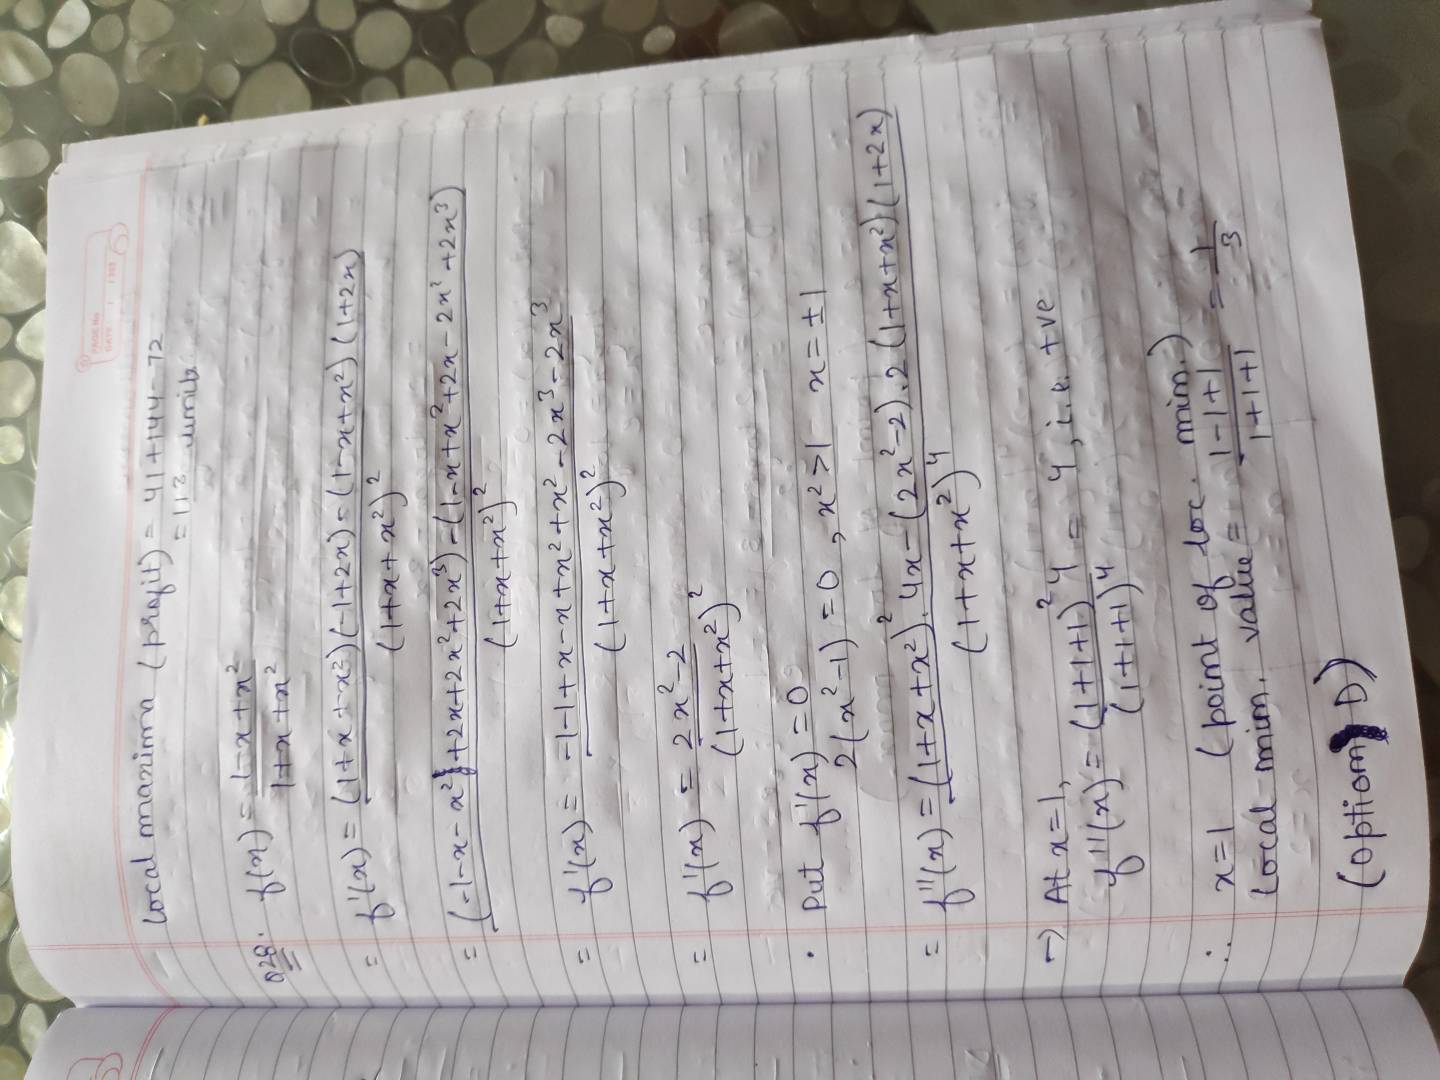 PAGE No.
DATE
Local maxima (profit) = 41 + 144 - 72
= 113 units.
Q28. f(x) = 1-x+x² / 1+x+x²
= f'(x) = (1+x+x²)(-1+2x) - (1-x+x²)(1+2x) / (1+x+x²)²
= (-1-x-x²+2x+2x²+2x³) - (1-x+x²+2x-2x²+2x³) / (1+x+x²)²
= f'(x) = -1-1+x-x+x²+x²-2x³-2x³ / (1+x+x²)²
= f'(x) = 2x²-2 / (1+x+x²)²
. Put f'(x) = 0
2(x²-1) = 0, x²>1 - x = ±1
= f''(x) = (1+x+x²)².4x-(2x²-2).2(1+x+x²)(1+2x) / (1+x+x²)⁴
→ At x=1,
f''(x) = (1+1+1)²4 / (1+1+1)⁴ = 4, i.e. +ve
∴ x=1 (point of loc. min.)
Local min. value = 1-1+1 / 1+1+1 = 1/3
(option D)